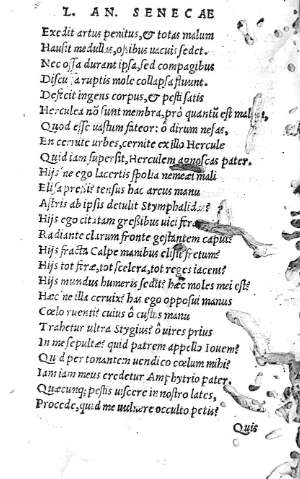 L. AN. SENECAE
Exedit artus penitus, & totas malum
Hausit medullas, ossibus uacuis sedet.
Nec ossa durant ipsa, sed compagibus
Discussa ruptis mole collapsa fluunt.
Defecit ingens corpus, & pesti satis
Herculea nō sunt membra, prò quantū est malum,
Quod esse uastum fateor: ô dirum nefas,
En cernite urbes, cernite ex illo Hercule
Quid iam supersit, Herculem agnoscas pater.
Hijs ne ego lacertis spolia nemeæi mali
Elisa pressi? tensus hac arcus manu
Astris ab ipsis detulit Stymphalidas?
Hijs ego citatam gressibus uici feram
Radiante clarum fronte gestantem caput?
Hijs fracta Calpe manibus elisit fretum?
Hijs tot feræ, tot scelera, tot reges iacent?
Hijs mundus humeris sedit? hæc moles mei est?
Hæc ne illa ceruix? has ego opposui manus
Cœlo ruenti? cuius ô custos manu
Trahetur ultra Stygius? ô uires prius
In me sepultæ? quid patrem appello Iouem?
Quid per tonantem uendico cœlum mihi?
Iam iam meus credetur Amphytrio pater.
Quæcunq; pestis uiscere in nostro lates,
Procede, quid me uulnere occulto petis?
Quis